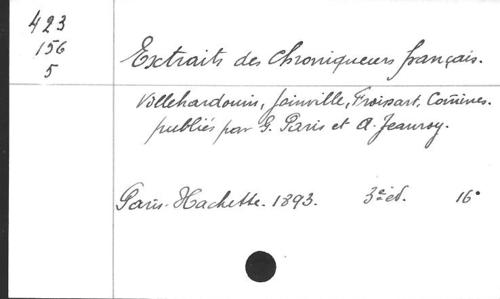 423
156
5
Extraits des Chroniqueurs français.
Villehardouin, Joinville, Froissart, Comines.
publiés par G. Paris et A. Jeanroy.
Paris. Hachette. 1893. 3e éd. 16°